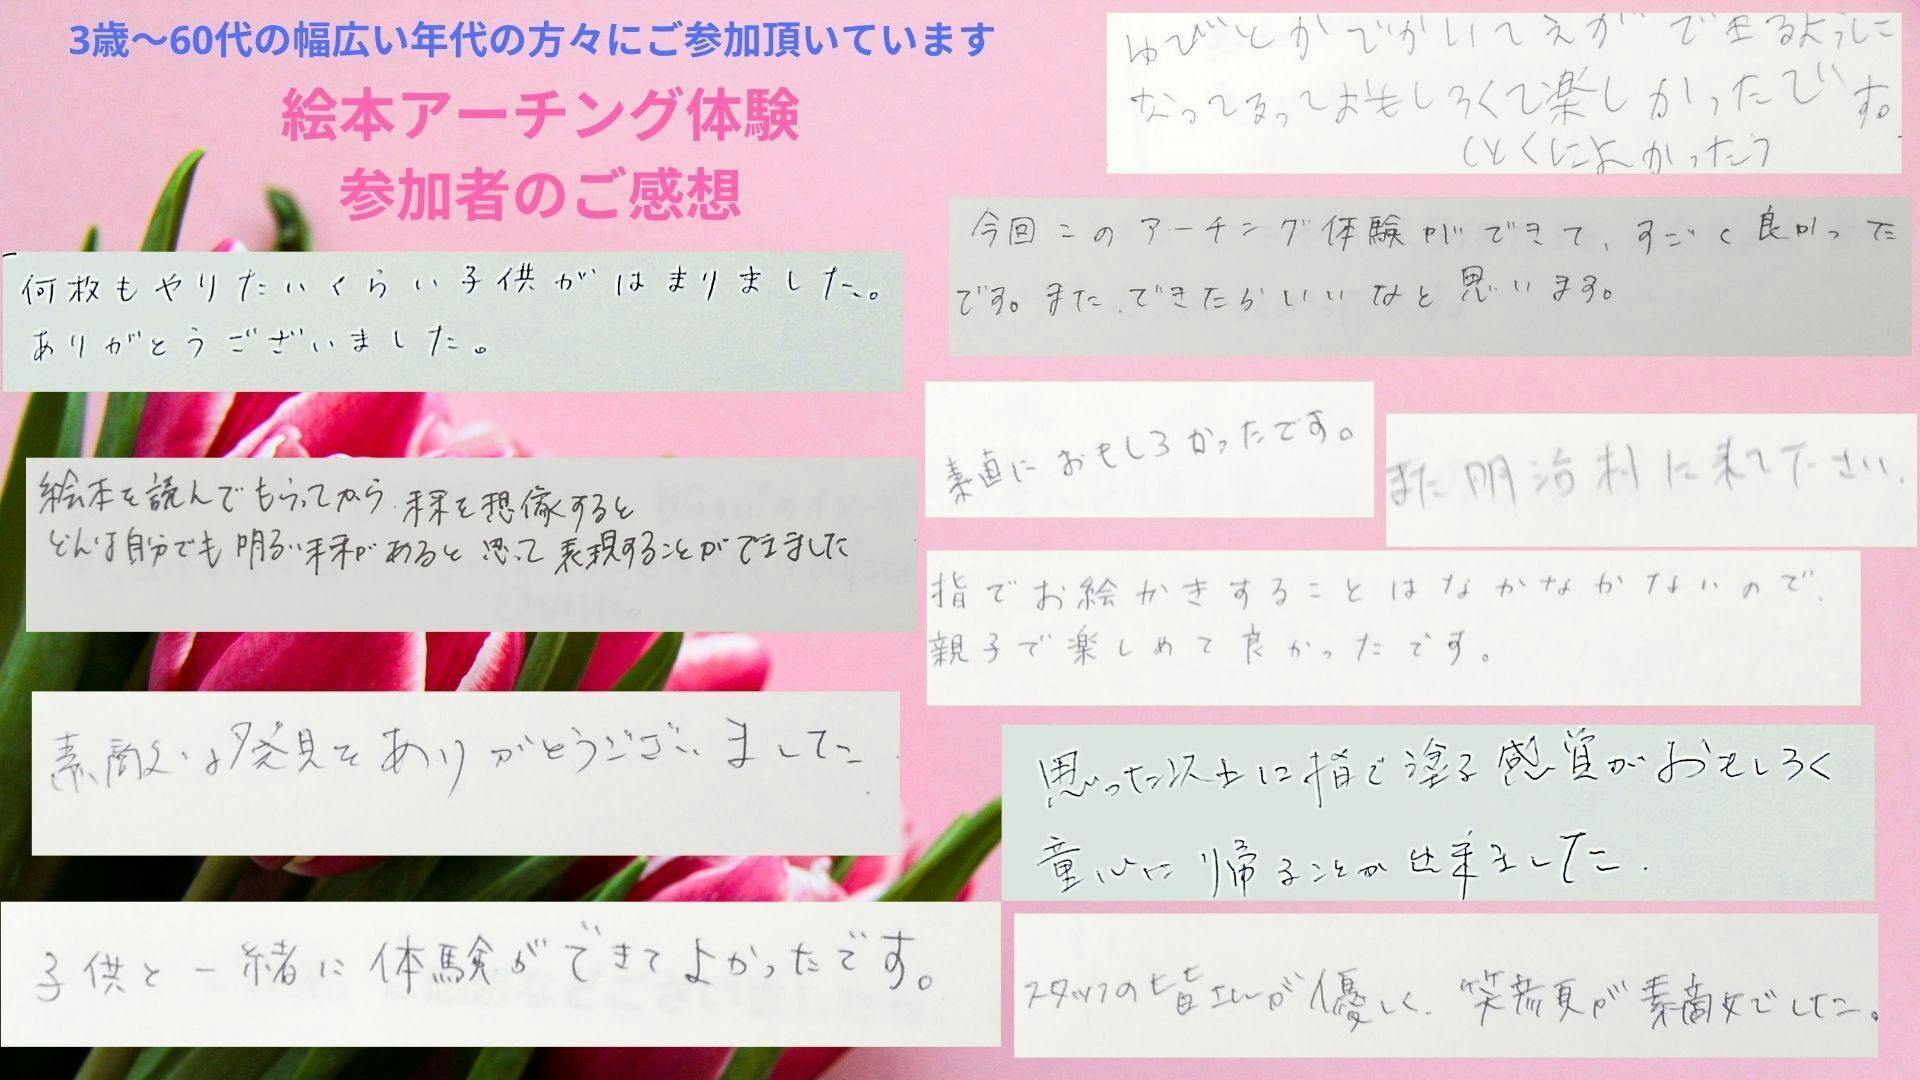 3歳〜60代の幅広い年代の方々にご参加頂いています
絵本アーチング体験
参加者のご感想
何枚もやりたいくらい子供がはまりました。
ありがとうございました。
絵本を読んでもらってから、未来を想像すると
どんな自分でも明るい未来があると思って表現することができました
素敵な発見をありがとうございました.
子供と一緒に体験ができてよかったです。
ゆびとかでかいてえができるように
なってるっておもしろくて楽しかったです。
(とくによかったう
今回このアーチング体験ができて、すごく良かった
です。また、できたらいいなと思います。
素直におもしろかったです。
また明治村に来て下さい.
指でお絵かきすることはなかなかないので、
親子で楽しめて良かったです。
思った以上に指で塗る感覚がおもしろく
童心に帰ることが出来ました.
スタッフの皆さんが優しく、笑顔が素敵でした。